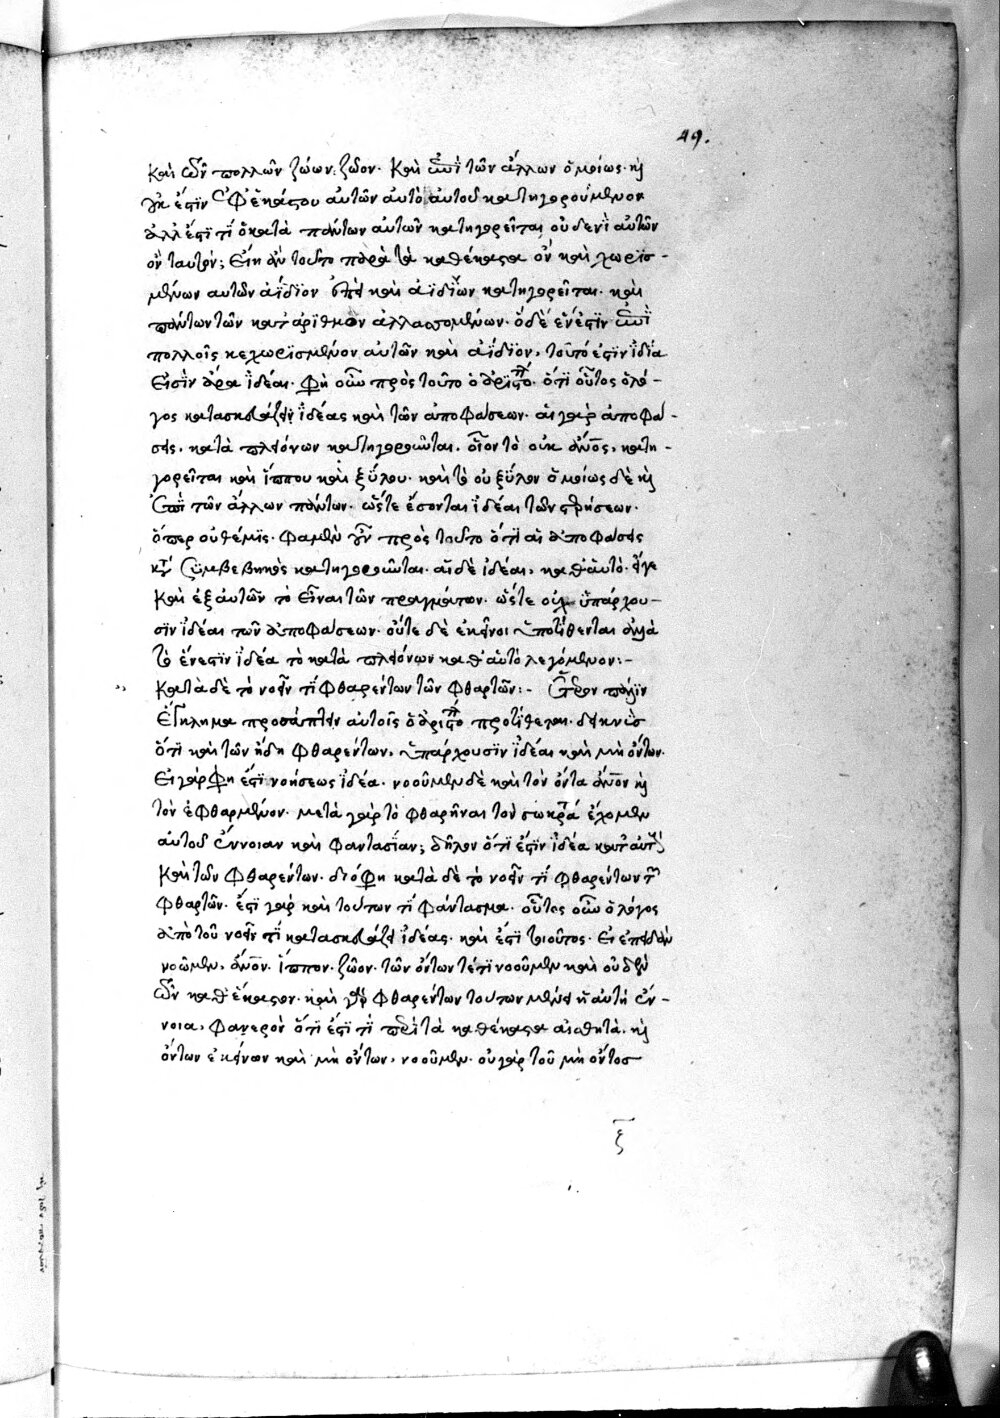 49.
καὶ τῶν πολλῶν ζώων, ζῶον. καὶ ἐπὶ τῶν ἄλλων ὁμοίως. καὶ
οὐκ ἔστιν ἐφ' ἑκάστου αὐτῶν αὐτὸ αὑτοῦ κατηγορούμενον
ἀλλ' ἔστι τὶ ὃ κατὰ πάντων αὐτῶν κατηγορεῖται οὐδενὶ αὐτῶν
ὂν ταυτόν; εἴη ἂν τοῦτο παρὰ τὰ καθέκαστα ὂν καὶ χωρισ-
μένων αὐτῶν ἀΐδιον καὶ κατηγορεῖται. καὶ
πάντων τῶν κατ' ἀριθμὸν ἀλλαττομένων. ὃ δὲ ἕν ἐστιν ἐπὶ
πολλοῖς κεχωρισμένον αὐτῶν καὶ ἀΐδιον, τοῦτό ἐστιν ἰδέα
εἰσὶν ἄρα ἰδέαι. φησὶν οὖν πρὸς τοῦτο ὁ ἀριστο. ὅτι οὗτος ὁ λό-
γος κατασκευάζει ἰδέας καὶ τῶν ἀποφάσεων. αἱ γὰρ ἀποφά-
σεις, κατὰ πλειόνων κατηγοροῦνται. οἷον τὸ οὐκ ἄνος, κατη-
γορεῖται καὶ ἵππου καὶ ξύλου. καὶ τὸ οὐ ξύλον ὁμοίως δὲ καὶ
ἐπὶ τῶν ἄλλων πάντων. ὥστε ἔσονται ἰδέαι τῶν στερήσεων.
ὅπερ οὐ θέμις. φαμὲν οὖν πρὸς τοῦτο ὅτι αἱ ἀποφάσεις
κατὰ συμβεβηκὸς κατηγοροῦνται. αἱ δὲ ἰδέαι, καθ' αὑτό. εἴγε
καὶ ἐξ αὐτῶν τὸ εἶναι τῶν πραγμάτων. ὥστε οὐχ ὑπάρχου-
σιν ἰδέαι τῶν ἀποφάσεων. οὔτε δὲ ἐκεῖνοι ὑποτίθενται ἀλλὰ
τὸ ἕν ἐστιν ἰδέα τὸ κατὰ πλειόνων καθ' αὑτὸ λεγόμενον:-
κατὰ δὲ τὸ νοεῖν τὶ φθαρέντων τῶν φθαρτῶν:- ἕτερον πάλιν
ἔγκλημα προσάπτειν αὐτοῖς ὁ ἀριστο προτίθεται. δεικνὺς
ὅτι καὶ τῶν ἤδη φθαρέντων, ὑπάρχουσιν ἰδέαι καὶ μὴ ὄντων.
εἰ γάρ φησι ἔστι νοήσεως ἰδέα. νοοῦμεν δὲ καὶ τὸν ὄντα ἄνον καὶ
τὸν ἐφθαρμένον. μετὰ γὰρ τὸ φθαρῆναι τὸν σωκρά ἔχομεν
αὐτοῦ ἔννοιαν καὶ φαντασίαν; δῆλον ὅτι ἔστιν ἰδέα κατ' αὐτοὺς
καὶ τῶν φθαρέντων. διό φησι κατὰ δὲ τὸ νοεῖν τὶ φθαρέντων τῶν
φθαρτῶν. ἔστι γὰρ καὶ τούτων τὶ φάντασμα. οὗτος οὖν ὁ λόγος
ἀπὸ τοῦ νοεῖν τὶ κατασκευάζει ἰδέας. καὶ ἔστι τοιοῦτος. εἰ ἐπειδὰν
νοῶμεν, ἄνον. ἵππον. ζῶον. τῶν ὄντων τέ τι νοοῦμεν καὶ οὐδὲν
τῶν καθ' ἕκαστον. καὶ γὰρ φθαρέντων τούτων μένει ἡ αὐτὴ ἔν-
νοια, φανερὸν ὅτι ἔστι τὶ παρὰ τὰ καθέκαστα αἰσθητά. καὶ
ὄντων ἐκείνων καὶ μὴ ὄντων, νοοῦμεν. οὐ γὰρ τοῦ μὴ ὄντος
ξ